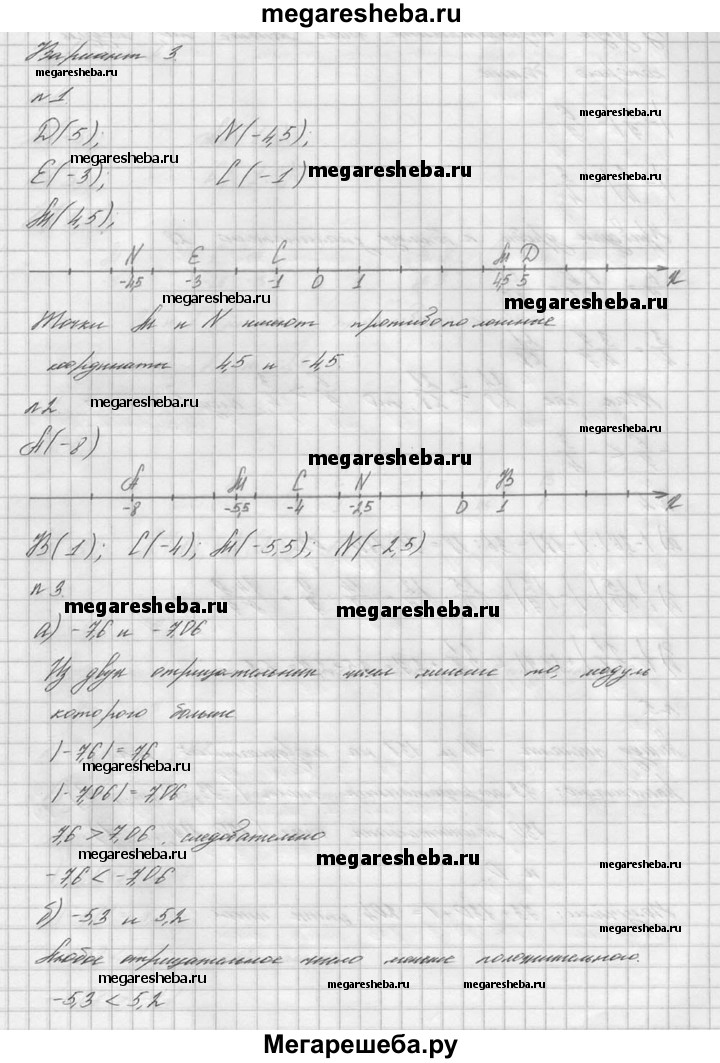 megaresheba.ru
Вариант 3.
megaresheba.ru
n 1.
megaresheba.ru
D(5); N(-4,5);
megaresheba.ru
megaresheba.ru
E(-3); C(-1)
megaresheba.ru
M(4,5);
N E C M D
-4,5 -3 -1 0 1 4,5 5 x
megaresheba.ru
megaresheba.ru
Точки M и N имеют противоположные
координаты 4,5 и -4,5
megaresheba.ru
n 2
megaresheba.ru
A(-8)
megaresheba.ru
A M C N B
-8 -5,5 -4 -2,5 0 1 x
B(1); C(-4); M(-5,5); N(-2,5)
n 3.
megaresheba.ru
megaresheba.ru
а) -7,6 и -7,06
Из двух отрицательных чисел меньше то, модуль
которого больше
|-7,6| = 7,6
megaresheba.ru
|-7,06| = 7,06
7,6 > 7,06, следовательно
megaresheba.ru
megaresheba.ru
megaresheba.ru
-7,6 < -7,06
б) -5,3 и 5,2
megaresheba.ru
Любое отрицательное число меньше положительного.
megaresheba.ru
megaresheba.ru
megaresheba.ru
-5,3 < 5,2
Мегарешеба.ру